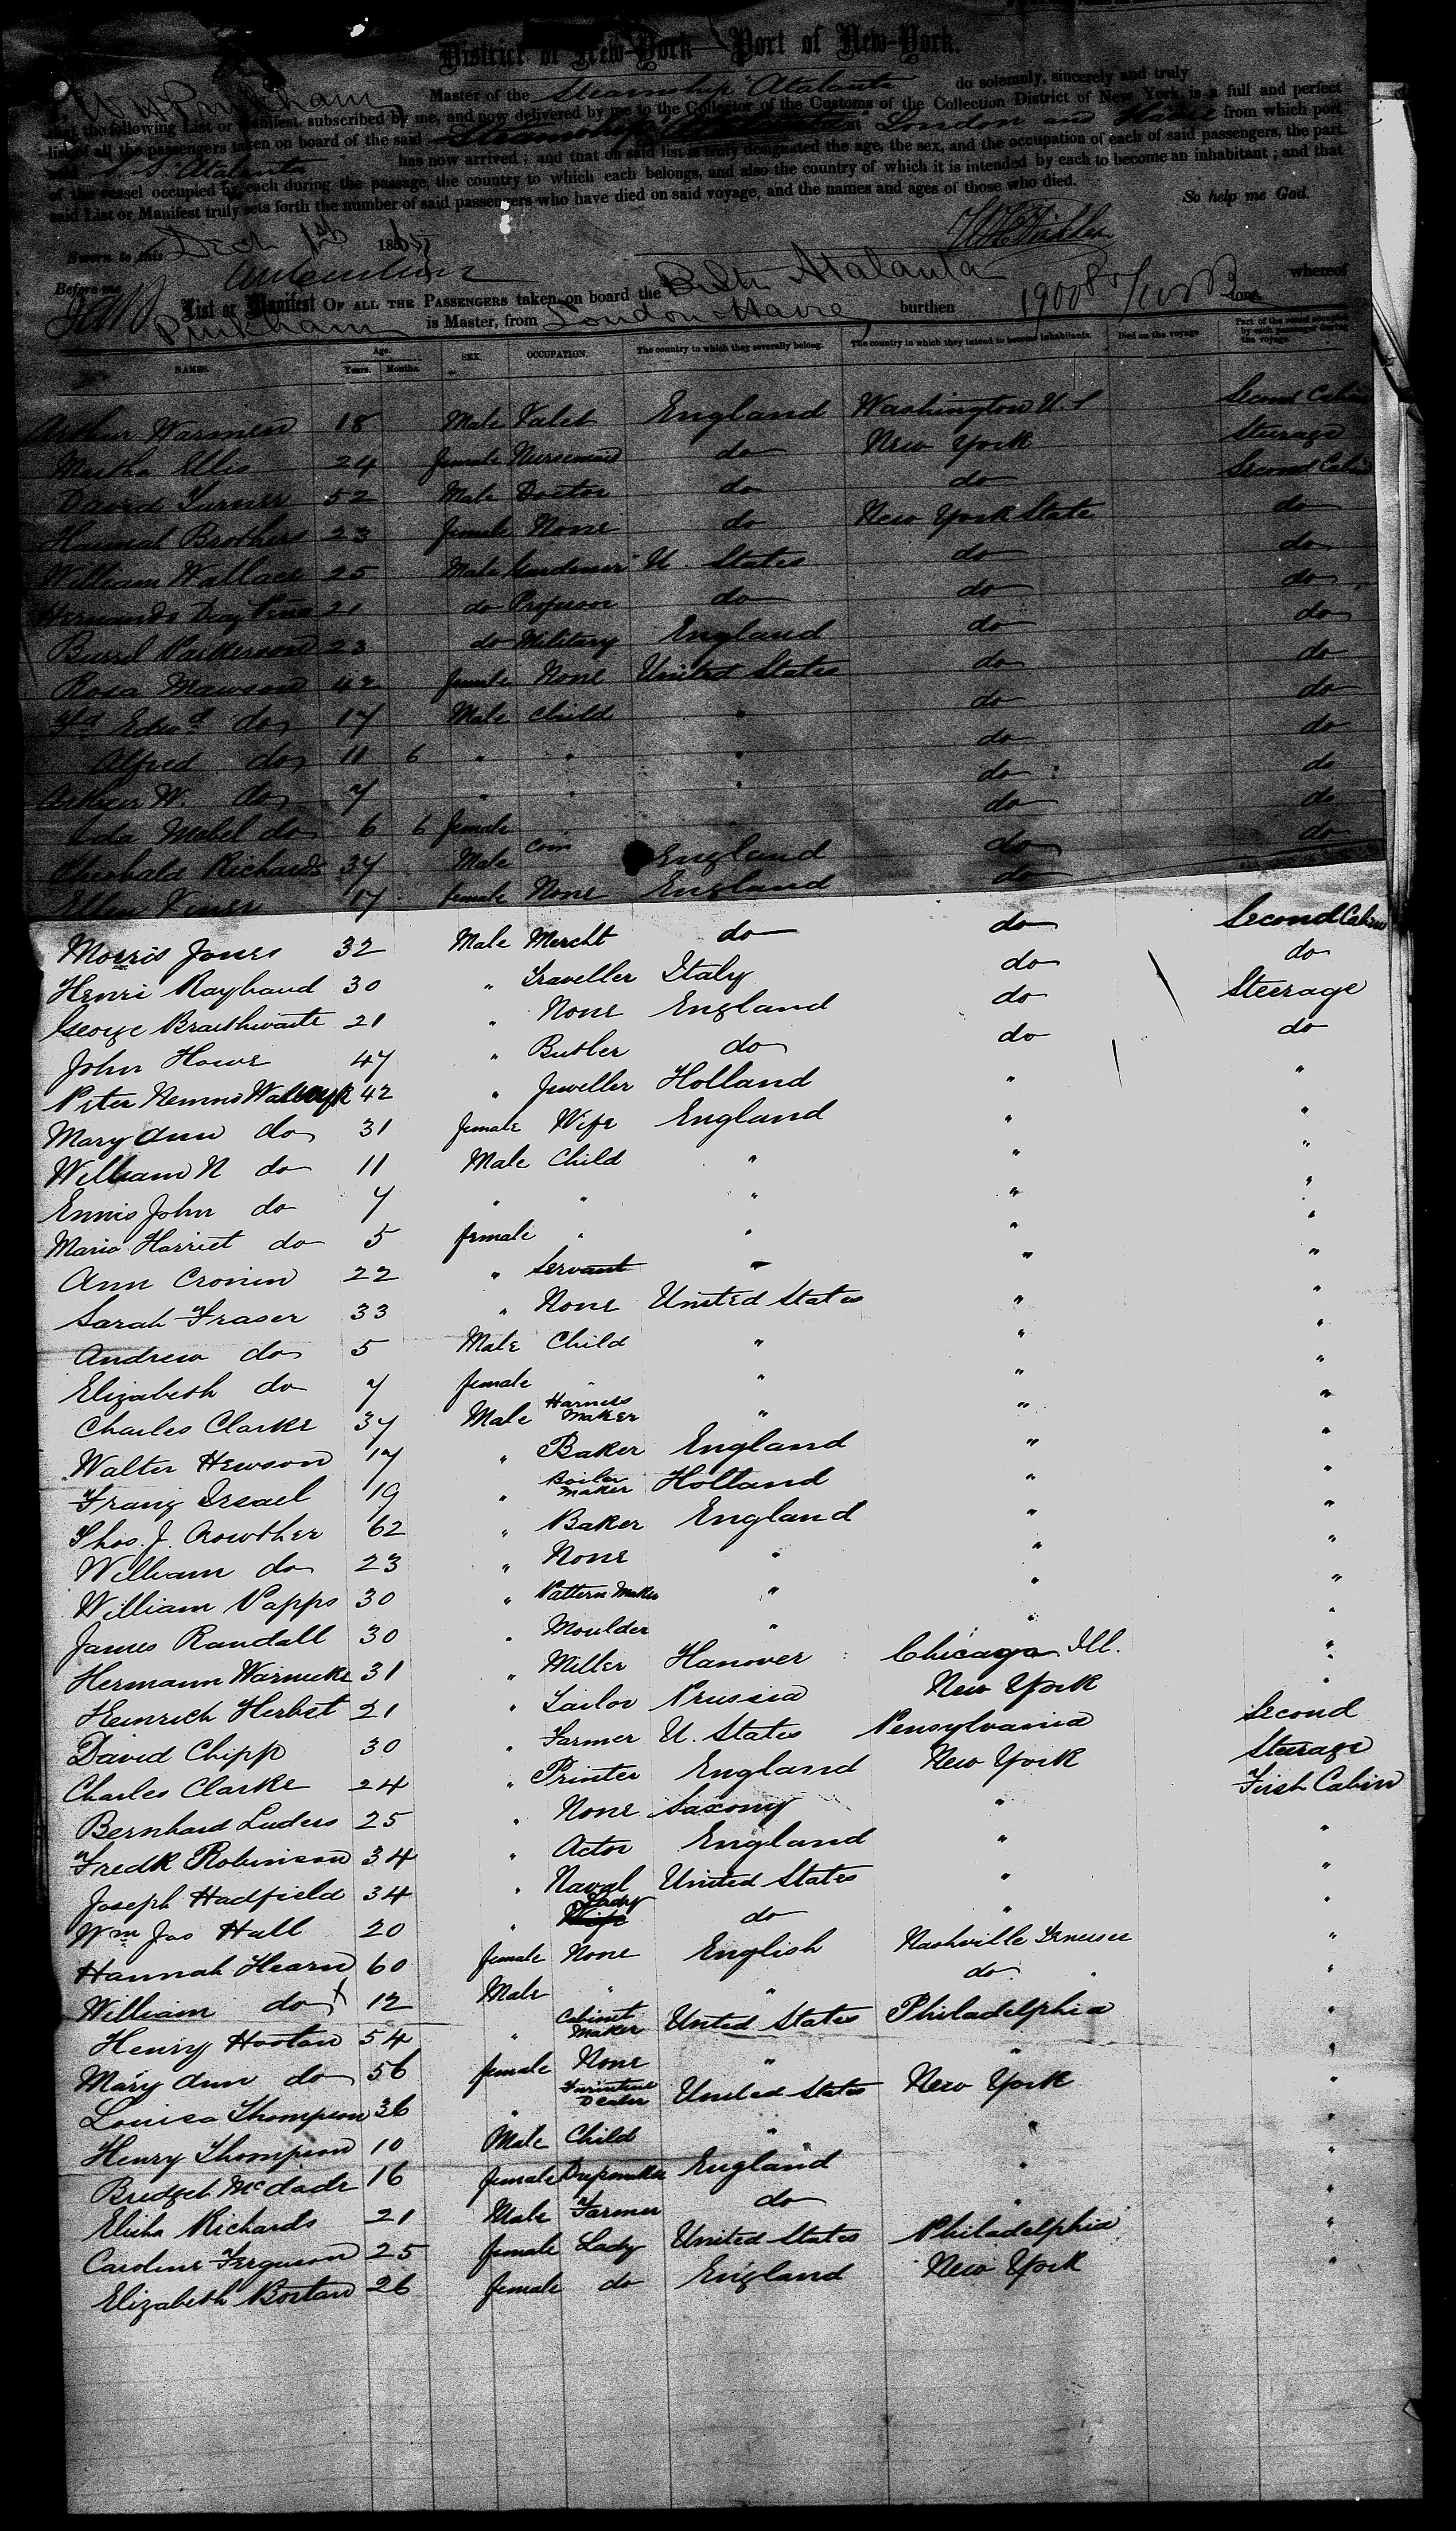 District of New-York — Port of New-York.
Master of the Steamship "Atalanta" do solemnly, sincerely and truly
that the following List or Manifest, subscribed by me, and now delivered by me to the Collector of the Customs of the Collection District of New York, is a full and perfect
list of all the passengers taken on board of the said Steamship at London and Havre from which port
S. S. Atalanta has now arrived; and that on said list is truly designated the age, the sex, and the occupation of each of said passengers, the part
of the vessel occupied by each during the passage, the country to which each belongs, and also the country of which it is intended by each to become an inhabitant; and that
said List or Manifest truly sets forth the number of said passengers who have died on said voyage, and the names and ages of those who died.
So help me God.
Sworn to this Dec 1st 1865
Before me
List or Manifest OF ALL THE PASSENGERS taken on board the Atalanta whereof
Pinkham is Master, from London Havre, burthen 1900 tons
NAMES. Age. Years. Months. SEX. OCCUPATION. The country to which they severally belong. The country in which they intend to become inhabitants. Died on the voyage. Part of the vessel occupied by each passenger during the voyage.
Arthur Warmen 18 Male Valet England Washington U.S Second Cabin
Martha Ellis 24 female Nursemaid do New York Steerage
David Turner 52 Male Doctor do do Second Cabin
Hannah Brothers 23 female None do New York State do
William Wallace 25 Male Gardener U. States do do
21 do Professor do do do
Parkerson 23 do Military England do do
Rosa Mawson 42 female None United States do do
Edwd do 17 Male Child " do do
Alfred do 11 6 " " " do do
Arthur W. do 7 " " " do do
Ida Mabel do 6 6 female do do
Theobald Richards 37 Male Com England do do
Ellen Viner 17 female None England do
Morris Jones 32 Male Mercht do do Second Cabin
Henri Raybaud 30 " Traveller Italy do do
George Braithwaite 21 " None England do Steerage
John Howe 47 " Butler do do do
Peter Nemns 42 " Jeweller Holland " "
Mary Ann do 31 female Wife England " "
William N do 11 Male Child " " "
Ennis John do 7 " " " " "
Maria Harriet do 5 female " " " "
Ann Cronin 22 " Servant " " "
Sarah Fraser 33 " None United States " "
Andrew do 5 Male Child " " "
Elizabeth do 7 female " " " "
Charles Clarke 37 Male Harness Maker " " "
Walter Hewson 17 " Baker England " "
Franz Israel 19 " Boiler Maker Holland " "
Thos. J. Crowther 62 " Baker England " "
William do 23 " None " " "
William Papps 30 " Pattern Maker " " "
James Randall 30 " Moulder " " "
Hermann Warnucke 31 " Miller Hanover Chicago Ill. "
Heinrich Herbst 21 " Tailor Prussia New York "
David Chipp 30 " Farmer U. States Pensylvania Second
Charles Clarke 24 " Printer England New York Steerage
Bernhard Luders 25 " None Saxony " First Cabin
Fredk Robinson 34 " Actor England " "
Joseph Hadfield 34 " Naval United States " "
Wm Jas Hall 20 " Lady do " "
Hannah Hearn 60 female None English Nashville Tenusee "
William do 12 Male " " do "
Henry Hootan 54 " Cabinet Maker United States Philadelphia "
Mary Ann do 56 female None " " "
Louisa Thompson 36 " Furniture Dealer United States New York "
Henry Thompson 10 Male Child " " "
Bridget McDade 16 female Dressmaker England " "
Elisha Richards 21 Male Farmer do " "
Caroline Ferguson 25 female Lady United States Philadelphia "
Elizabeth Bostan 26 female do England New York "